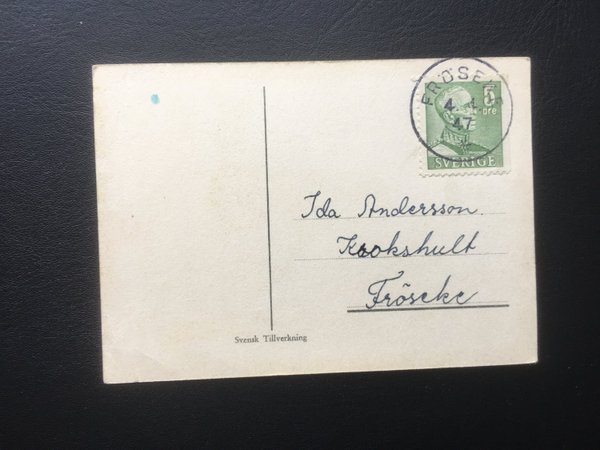 FRÖSEKE
4. 4.
47
5
öre
SVERIGE
Ida Andersson.
Krokshult
Fröseke
Svensk Tillverkning